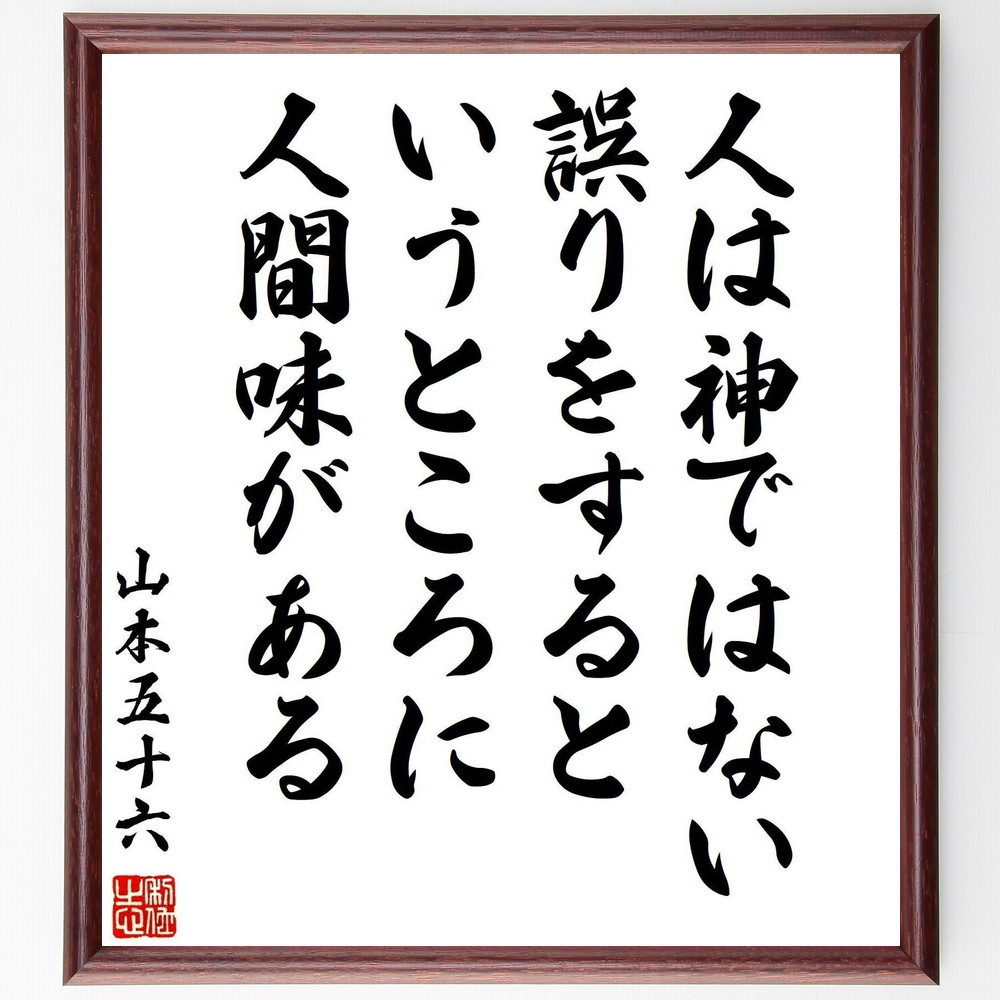 人は神ではない
誤りをすると
いうところに
人間味がある
山本五十六